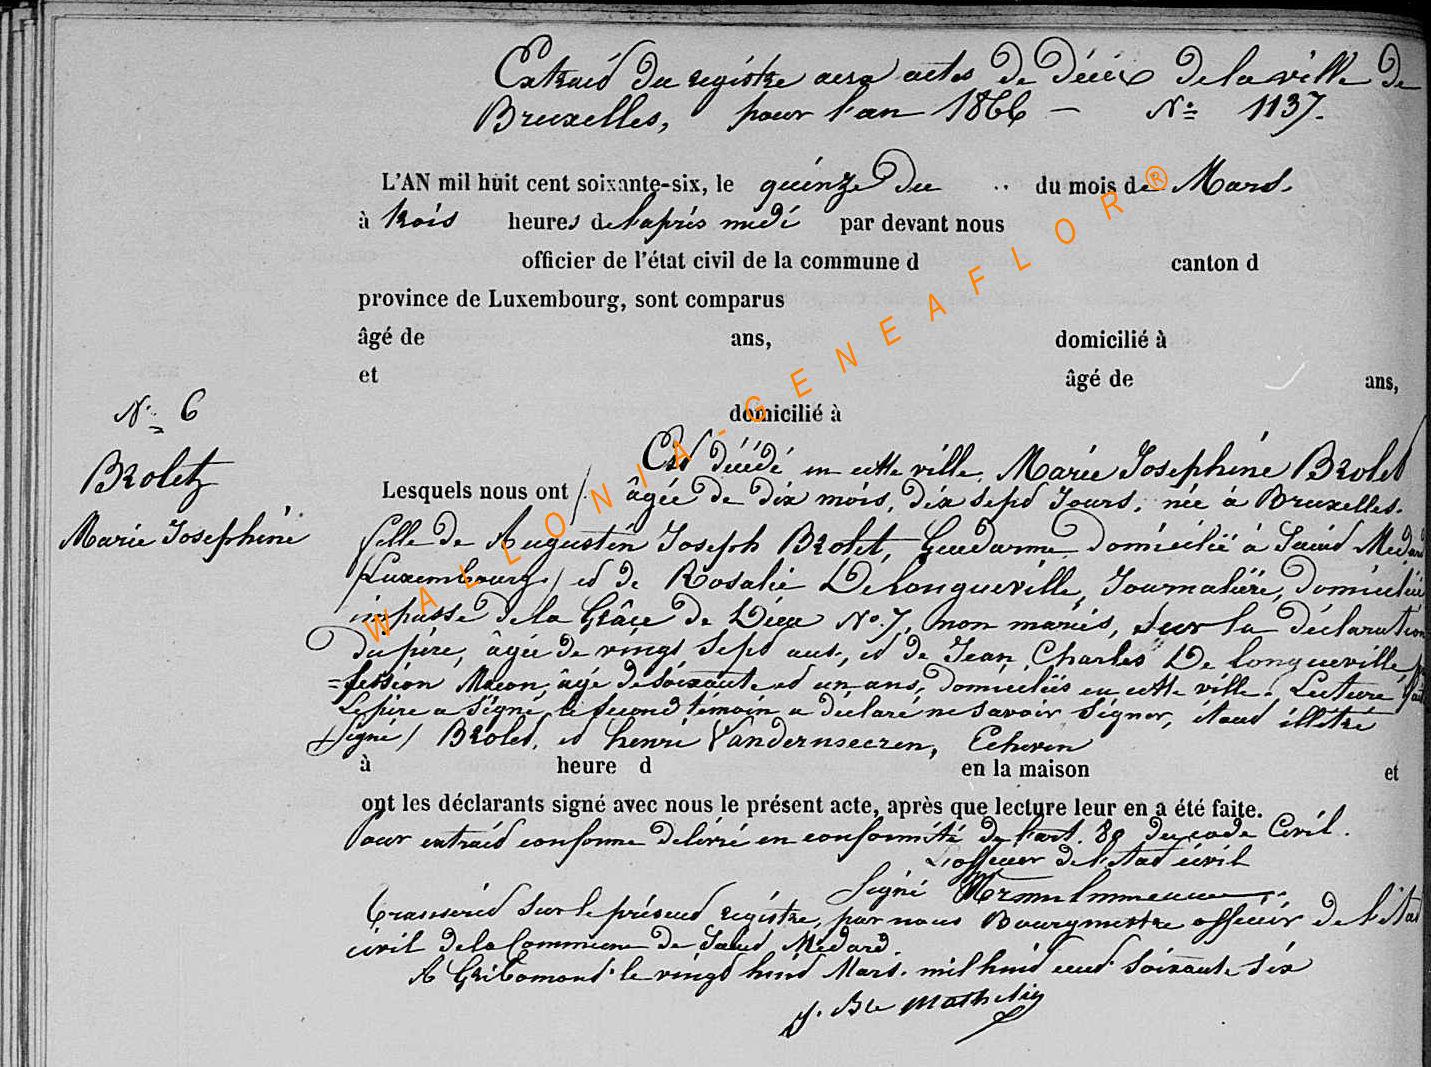 Extrait du registre aux actes de Décès de la ville de
Bruxelles, pour l'an 1866 — N.º 1137.
L'AN mil huit cent soixante-six, le quinze du .. du mois de Mars.
à trois heures de l'après midi par devant nous
officier de l'état civil de la commune d canton d
province de Luxembourg, sont comparus
âgé de ans, domicilié à
et âgé de ans,
domicilié à
N.º 6
Brolet
Marie Josephine
Est décédé en cette ville, Marie Josephine Brolet
Lesquels nous ont / âgée de dix mois, dix sept Jours, née à Bruxelles.
fille de Augustin Joseph Brolet, Gendarme domicilié à Saint Médard
/Luxembourg/ et de Rosalie Delongueville, Journalière, domiciliée
impasse de la Grâce de Dieu N.º 7, non mariés, sur la déclaration
du père, âgé de vingt sept ans, et de Jean Charles De longueville, pro
=fession Maçon, âgé de soixante et un ans, domiciliés en cette ville. Lecture faite
Le père a signé, le second témoin a déclaré ne savoir signer, étant illétré
/Signé/ Brolet, et henri Echevin
à heure d en la maison et
ont les déclarants signé avec nous le présent acte, après que lecture leur en a été faite.
Pour extrait conforme délivré en conformité de l'art. 80 du code Civil.
L'officier de l'état civil
Signé
Transcrit sur le présent registre, par nous Bourgmestre officier de l'état
civil de la Commune de Saint Médard.
A Gribomont le vingt huit Mars. mil huit cent soixante six
J. Bte Mathelin
WALLONIA-GENEAFLOR®